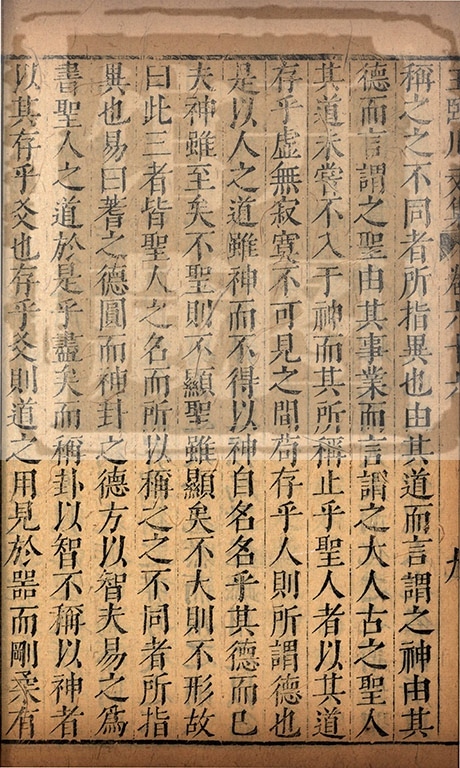 王臨川文集 卷六十六 九
稱之之不同者所指異也由其道而言謂之神由其
德而言謂之聖由其事業而言謂之大人古之聖人
其道未嘗不入于神而其所稱止乎聖人者以其道
存乎虛無寂寞不可見之間苟存乎人則所謂德也
是以人之道雖神而不得以神自名名乎其德而已
夫神雖至矣不聖則不顯聖雖顯矣不大則不形故
曰此三者皆聖人之名而所以稱之之不同者所指
異也易曰蓍之德圓而神卦之德方以智夫易之爲
書聖人之道於是乎盡矣而稱卦以智不稱以神者
以其存乎爻也存乎爻則道之用見於器而剛柔有